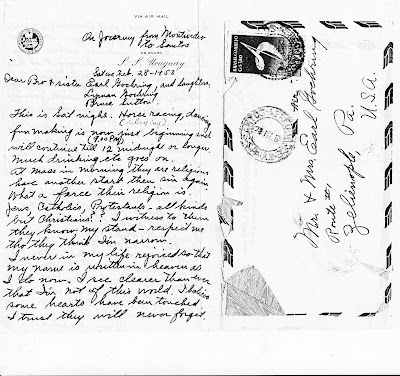 VIA AIR MAIL
On Journey from Montevideo
to Santos
ON BOARD
S. S. Uruguay
Sat eve Feb. 28-1953
Dear Bro & sister Earl Goehring, and daughters,
Lyman Goehring
Bruce Sutton.
This is Sat night. Horse racing, dancing
fun making is now just beginning and
(8:00 PM)
will continue till 12 midnight or longer
Much drinking etc goes on.
At Mass in morning they are religious
have another start then sin again
What a farce their religion is.
Jews Catholics, Protestants - all kinds
but Christians?? I witness to them
they know my stand - respect me
tho they think I'm narrow.
I never in my life rejoiced so that
my name is written in heaven as
I do now. I see clearer than ever
that I'm not of this world. I believe
some hearts have been touched
I trust they will never forget.
Mr & Mrs Earl Goehring
Route
Zelienople Pa.
U.S.A.